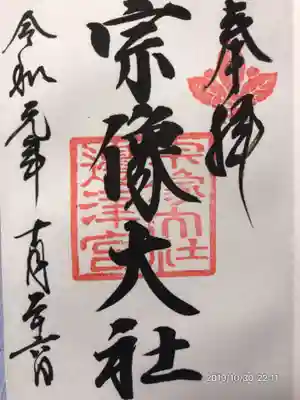 奉拝
宗像大社
宗像大社
邊津宮
令和元年十月二十六日
2019/10/30 22:11